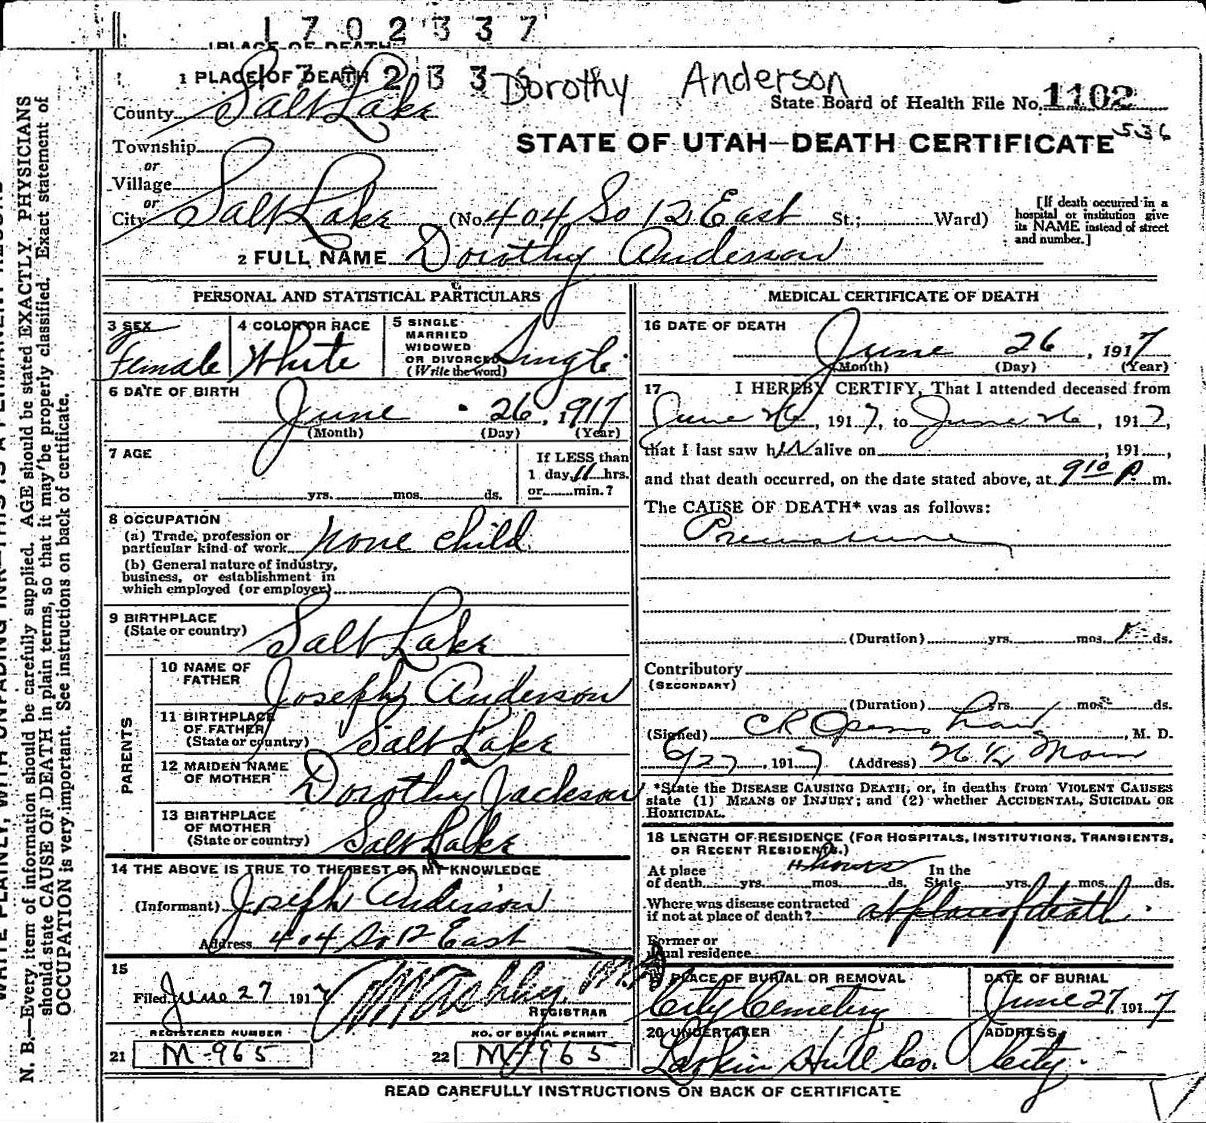 1702337
PLACE OF DEATH
1 PLACE OF DEATH Dorothy Anderson
County Salt Lake State Board of Health File No. 1102
536
STATE OF UTAH—DEATH CERTIFICATE
Township
or
Village
or
City Salt Lake (No. 404 So 12 East St.; Ward)
[If death occurred in a hospital or institution give its NAME instead of street and number.]
2 FULL NAME Dorothy Anderson
PERSONAL AND STATISTICAL PARTICULARS
3 SEX Female
4 COLOR OR RACE White
5 SINGLE MARRIED WIDOWED OR DIVORCED (Write the word) Single
6 DATE OF BIRTH
June 26, 1917
(Month) (Day) (Year)
7 AGE
yrs. mos. ds.
If LESS than
1 day 11 hrs.
or min.?
8 OCCUPATION
(a) Trade, profession or
particular kind of work none child
(b) General nature of industry,
business, or establishment in
which employed (or employer)
9 BIRTHPLACE
(State or country) Salt Lake
PARENTS
10 NAME OF FATHER Joseph Anderson
11 BIRTHPLACE OF FATHER (State or country) Salt Lake
12 MAIDEN NAME OF MOTHER Dorothy Jackson
13 BIRTHPLACE OF MOTHER (State or country) Salt Lake
14 THE ABOVE IS TRUE TO THE BEST OF MY KNOWLEDGE
(Informant) Joseph Anderson
Address 404 So 12 East
15
Filed June 27 1917
REGISTRAR
REGISTERED NUMBER
21 M-965
NO. OF BURIAL PERMIT
22 M-965
MEDICAL CERTIFICATE OF DEATH
16 DATE OF DEATH
June 26, 1917
(Month) (Day) (Year)
17 I HEREBY CERTIFY, That I attended deceased from
June 26, 1917, to June 26, 1917,
that I last saw h alive on , 191 ,
and that death occurred, on the date stated above, at 9 10 P. m.
The CAUSE OF DEATH* was as follows:
Premature
(Duration) yrs. mos. ds.
Contributory
(SECONDARY)
(Duration) yrs. mos. ds.
(Signed) C R Openshaw, M. D.
6/27, 1917 (Address) 26 1/2 Main
*State the DISEASE CAUSING DEATH, or, in deaths from VIOLENT CAUSES
state (1) MEANS OF INJURY; and (2) whether ACCIDENTAL, SUICIDAL OR
HOMICIDAL.
18 LENGTH OF RESIDENCE (FOR HOSPITALS, INSTITUTIONS, TRANSIENTS,
OR RECENT RESIDENTS.)
At place of death yrs. mos. ds. hours In the State yrs. mos. ds.
Where was disease contracted
if not at place of death? at place of death.
Former or
usual residence
19 PLACE OF BURIAL OR REMOVAL
City Cemetery
DATE OF BURIAL
June 27, 1917
20 UNDERTAKER
Larkin Hull Co.
ADDRESS
City.
READ CAREFULLY INSTRUCTIONS ON BACK OF CERTIFICATE
N. B.—Every item of information should be carefully supplied. AGE should be stated EXACTLY. PHYSICIANS
should state CAUSE OF DEATH in plain terms, so that it may be properly classified. Exact statement of
OCCUPATION is very important. See instructions on back of certificate.